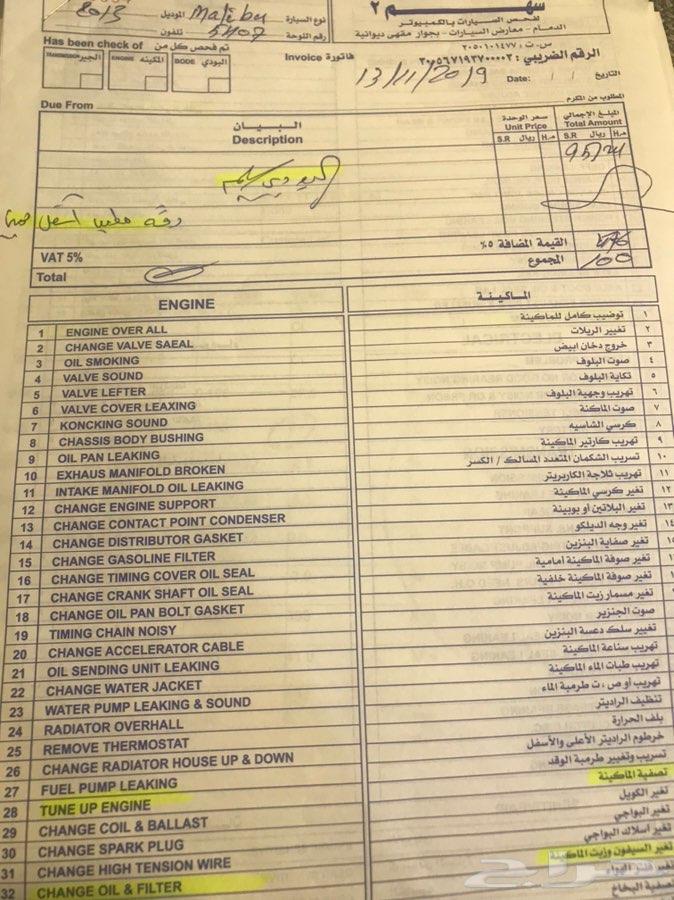 سهم ٢
لفحص السيارات بالكمبيوتر
الدمام - معارض السيارات - بجوار مقهى ديوانية
س.ت : ٢٠٥٠١٠١٤٧٧
الرقم الضريبي : ٣٠٠٥٦٧١٩٣٧٠٠٠٠٣
نوع السيارة Malibu الموديل 2013
رقم اللوحة 5402 تلفون
Has been check of تم فحص كل من
TRANSMISSION الجير ENGINE المكينه BODE البودي
Invoice فاتورة
13/11/2019 Date: / / التاريخ
Due From المطلوب من المكرم
البيان
Description
سعر الوحدة
Unit Price
المبلغ الإجمالي
Total Amount
S.R ريال H. هـ S.R ريال H. هـ
95/24
VAT 5% القيمة المضافة ٥% 4/76
Total المجموع 100
ENGINE الماكينة
1 ENGINE OVER ALL توضيب كامل للماكينة ١
2 CHANGE VALVE SAEAL تغيير الربلات ٢
3 OIL SMOKING خروج دخان ابيض ٣
4 VALVE SOUND صوت البلوف ٤
5 VALVE LEFTER تكاية البلوف ٥
6 VALVE COVER LEAXING تهريب وجهية البلوف ٦
7 KONCKING SOUND صوت الماكنة ٧
8 CHASSIS BODY BUSHING كرسي الشاسيه ٨
9 OIL PAN LEAKING تهريب كارتير الماكينة ٩
10 EXHAUS MANIFOLD BROKEN تسريب الشكمان المتعدد المسالك / الكسر ١٠
11 INTAKE MANIFOLD OIL LEAKING تهريب ثلاجة الكاربريتر ١١
12 CHANGE ENGINE SUPPORT تغير كرسي الماكينة ١٢
13 CHANGE CONTACT POINT CONDENSER تغير البلاتين أو بوبينة ١٣
14 CHANGE DISTRIBUTOR GASKET تغير وجه الديلكو
15 CHANGE GASOLINE FILTER تغير صفاية البنزين
16 CHANGE TIMING COVER OIL SEAL تغير صوفة الماكينة أمامية
17 CHANGE CRANK SHAFT OIL SEAL تغير صوفة الماكينة خلفية
18 CHANGE OIL PAN BOLT GASKET تغير مسمار زيت الماكينة
19 TIMING CHAIN NOISY صوت الجنزير
20 CHANGE ACCELERATOR CABLE تغيير سلك دعسة البنزين
21 OIL SENDING UNIT LEAKING تهريب ساعة الماكينة
22 CHANGE WATER JACKET تهريب طبات الماء الماكينة
23 WATER PUMP LEAKING & SOUND تهريب او ص ، ت طرمبة الماء
24 RADIATOR OVERHALL تنظيف الراديتر
25 REMOVE THERMOSTAT بلف الحرارة
26 CHANGE RADIATOR HOUSE UP & DOWN خرطوم الراديتر الأعلى والأسفل
27 FUEL PUMP LEAKING تسريب وتغيير طرمبة الوقد
28 TUNE UP ENGINE تصفية الماكينة
29 CHANGE COIL & BALLAST تغير الكويل
30 CHANGE SPARK PLUG تغير البواجي
31 CHANGE HIGH TENSION WIRE تغير اسلاك البواجي
32 CHANGE OIL & FILTER تغير السيفون وزيت الماكينة
تصفية البخاخ
حراج